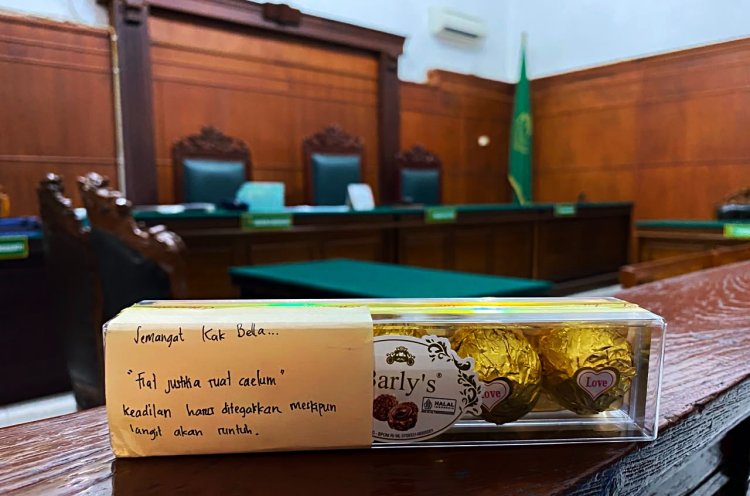 Semangat Kak Bella...
"Fiat justitia ruat caelum"
keadilan harus ditegakkan meskipun
langit akan runtuh.
Barly's®
HALAL
Love
Love